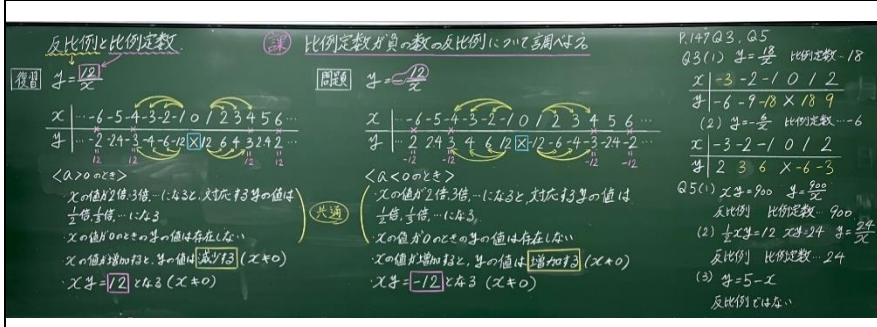 反比例と比例定数
課 比例定数が負の数の反比例について調べよう
復習 y=12/x
x …-6 -5 -4 -3 -2 -1 0 1 2 3 4 5 6…
y …-2 -2.4 -3 -4 -6 -12 × 12 6 4 3 2.4 2…
12 12 12 12
<a>0のとき>
・xの値が2倍、3倍、…になると、対応するyの値は
1/2倍、1/3倍、…になる
・xの値が0のときのyの値は存在しない
・xの値が増加すると、yの値は減少する(x≠0)
・xy=12となる(x≠0)
共通
問題 y=-12/x
x …-6 -5 -4 -3 -2 -1 0 1 2 3 4 5 6…
y …2 2.4 3 4 6 12 × -12 -6 -4 -3 -2.4 -2…
-12 -12 -12 -12
<a<0のとき>
・xの値が2倍、3倍、…になると、対応するyの値は
1/2倍、1/3倍、…になる
・xの値が0のときのyの値は存在しない
・xの値が増加すると、yの値は増加する(x≠0)
・xy=-12となる(x≠0)
P.147 Q3、Q5
Q3(1) y=18/x 比例定数…18
x -3 -2 -1 0 1 2
y -6 -9 -18 × 18 9
(2) y=-6/x 比例定数…-6
x -3 -2 -1 0 1 2
y 2 3 6 × -6 -3
Q5(1) xy=900 y=900/x
反比例 比例定数…900
(2) 1/2xy=12 xy=24 y=24/x
反比例 比例定数…24
(3) y=5-x
反比例ではない